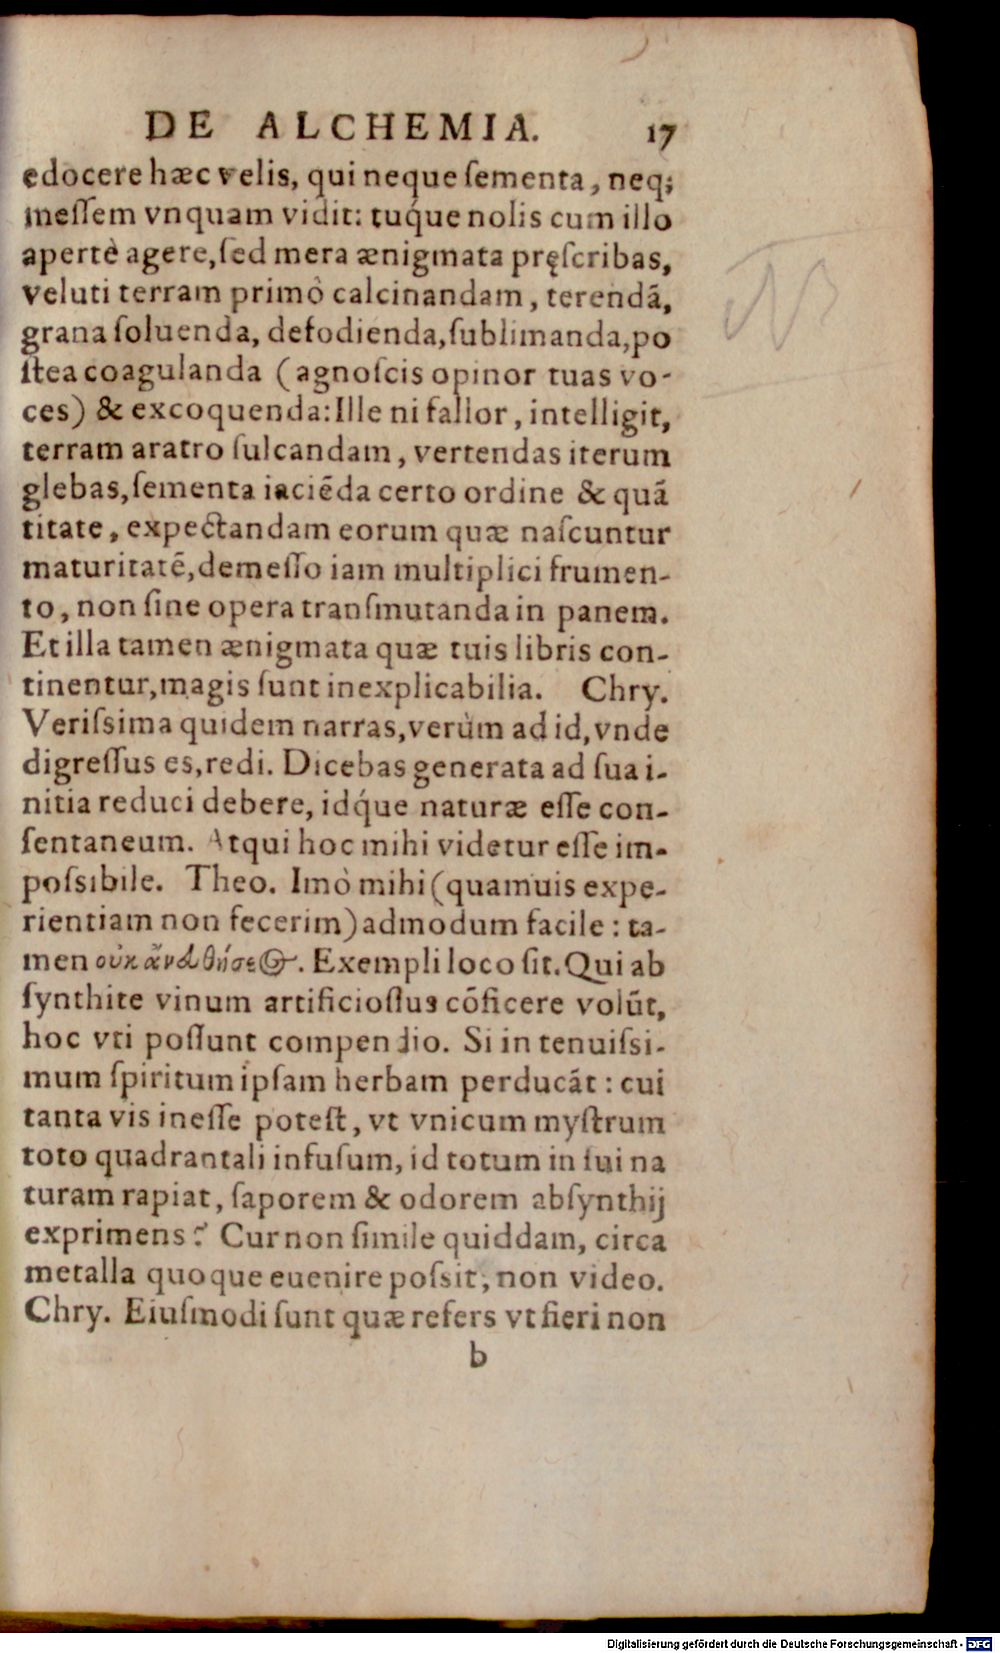 DE ALCHEMIA. 17
edocere hæc velis, qui neque ſementa, neq;
meſſem vnquam vidit: tuq́ue nolis cum illo
apertè agere, ſed mera ænigmata pręſcribas,
veluti terram primò calcinandam, terendā,
grana ſoluenda, defodienda, ſublimanda, po
ſtea coagulanda (agnoſcis opinor tuas vo-
ces) & excoquenda: Ille ni fallor, intelligit,
terram aratro ſulcandam, vertendas iterum
glebas, ſementa iaciēda certo ordine & quā
titate, expectandam eorum quæ naſcuntur
maturitatē, demeſſo iam multiplici frumen-
to, non ſine opera tranſmutanda in panem.
Et illa tamen ænigmata quæ tuis libris con-
tinentur, magis ſunt inexplicabilia. Chry.
Veriſsima quidem narras, verùm ad id, vnde
digreſſus es, redi. Dicebas generata ad ſua i-
nitia reduci debere, idq́ue naturæ eſſe con-
ſentaneum. Atqui hoc mihi videtur eſſe im-
poſsibile. Theo. Imò mihi (quamuis expe-
rientiam non fecerim) admodum facile: ta-
men οὐκ . Exempli loco ſit. Qui ab
ſynthite vinum artificioſius cōficere volūt,
hoc vti poſſunt compendio. Si in tenuiſsi-
mum ſpiritum ipſam herbam perducāt: cui
tanta vis ineſſe poteſt, vt vnicum myſtrum
toto quadrantali infuſum, id totum in ſui na
turam rapiat, ſaporem & odorem abſynthij
exprimens? Cur non ſimile quiddam, circa
metalla quoque euenire poſsit, non video.
Chry. Eiuſmodi ſunt quæ refers vt fieri non
b
NB
Digitalisierung gefördert durch die Deutsche Forschungsgemeinschaft - DFG